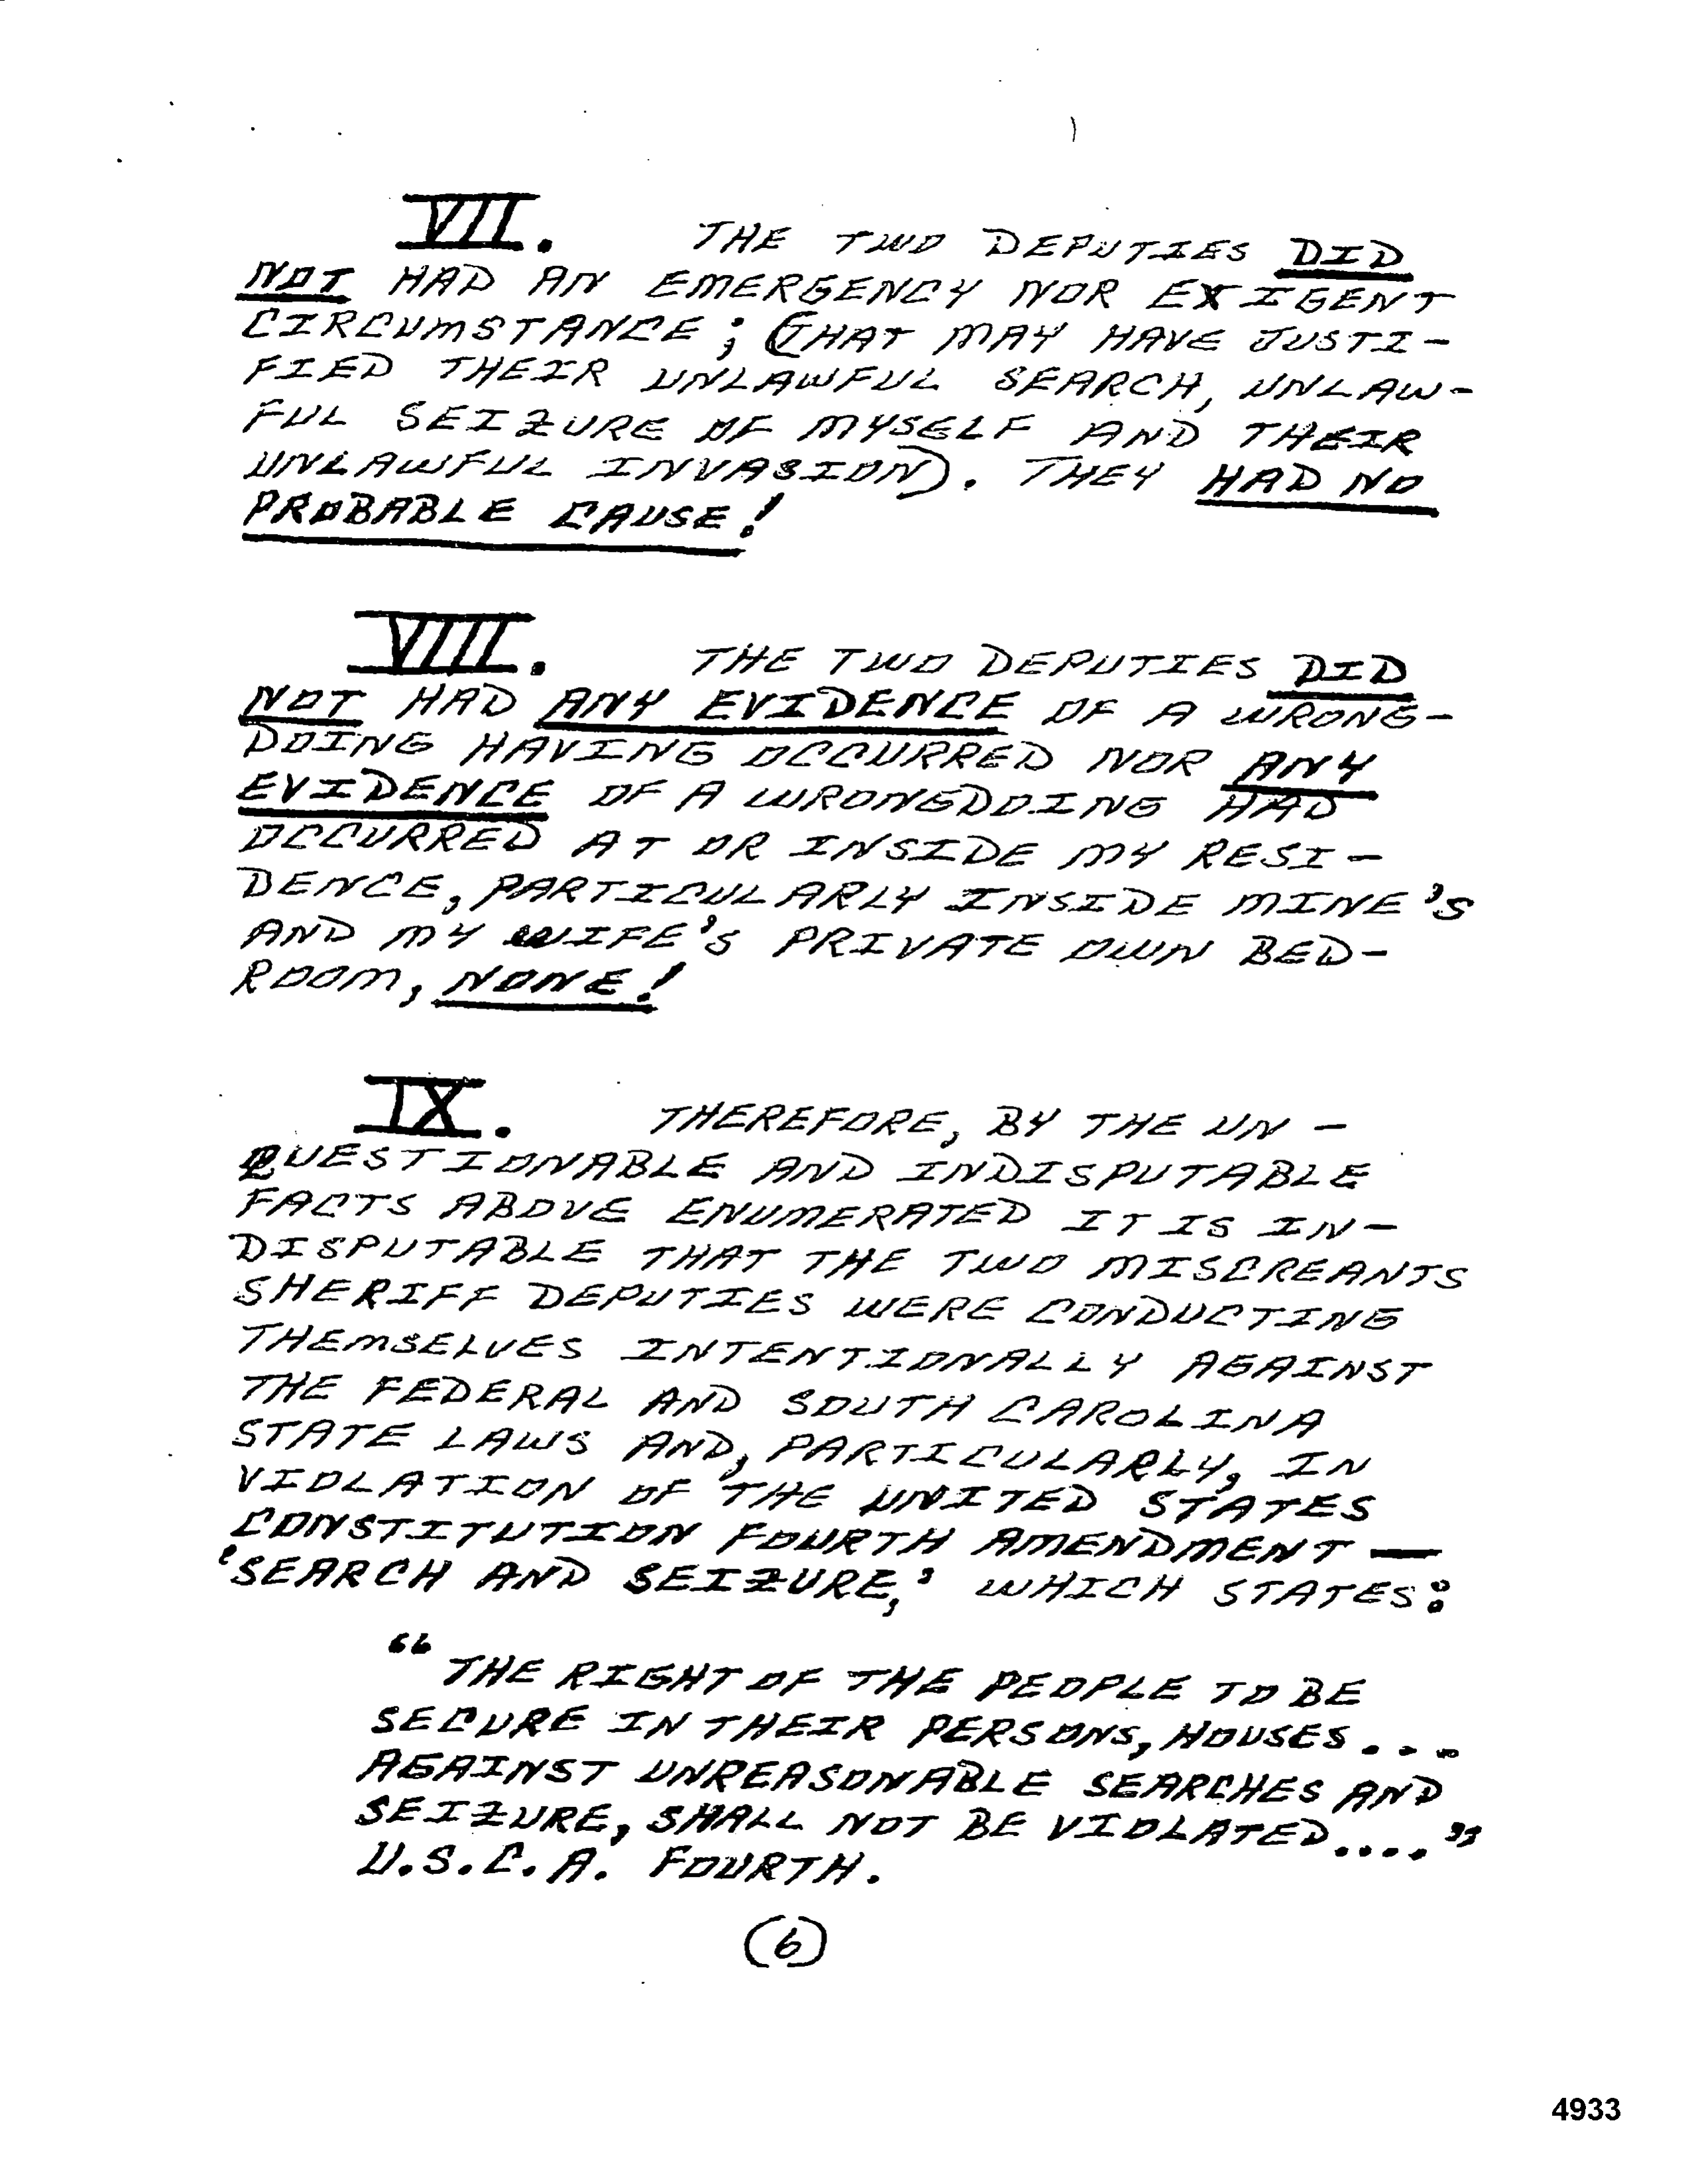 VII. THE TWO DEPUTIES DID
NOT HAD AN EMERGENCY NOR EXIGENT
CIRCUMSTANCE; (THAT MAY HAVE JUSTI-
FIED THEIR UNLAWFUL SEARCH, UNLAW-
FUL SEIZURE OF MYSELF AND THEIR
UNLAWFUL INVASION). THEY HAD NO
PROBABLE CAUSE!
VIII. THE TWO DEPUTIES DID
NOT HAD ANY EVIDENCE OF A WRONG-
DOING HAVING OCCURRED NOR ANY
EVIDENCE OF A WRONGDOING HAD
OCCURRED AT OR INSIDE MY RESI-
DENCE, PARTICULARLY INSIDE MINE'S
AND MY WIFE'S PRIVATE OWN BED-
ROOM, NONE!
IX. THEREFORE, BY THE UN-
QUESTIONABLE AND INDISPUTABLE
FACTS ABOVE ENUMERATED IT IS IN-
DISPUTABLE THAT THE TWO MISCREANTS
SHERIFF DEPUTIES WERE CONDUCTING
THEMSELVES INTENTIONALLY AGAINST
THE FEDERAL AND SOUTH CAROLINA
STATE LAWS AND, PARTICULARLY, IN
VIOLATION OF THE UNITED STATES
CONSTITUTION FOURTH AMENDMENT —
'SEARCH AND SEIZURE,' WHICH STATES:
"THE RIGHT OF THE PEOPLE TO BE
SECURE IN THEIR PERSONS, HOUSES...
AGAINST UNREASONABLE SEARCHES AND
SEIZURE, SHALL NOT BE VIOLATED...."
U.S.C.A. FOURTH.
(6)
4933